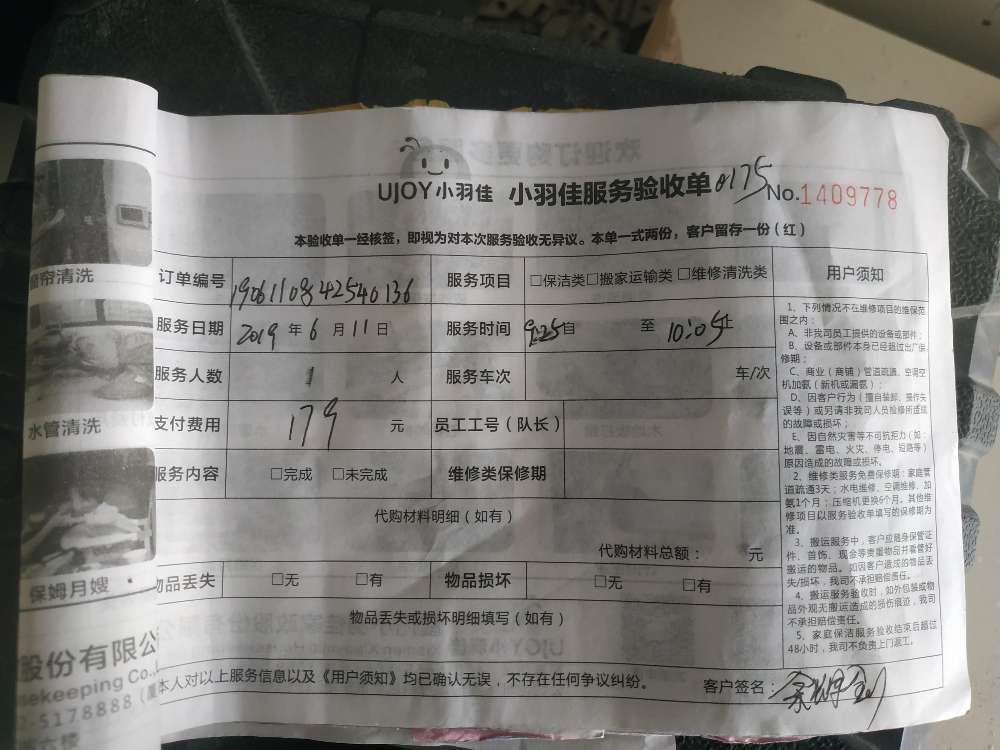 UJOY小羽佳 小羽佳服务验收单 0175 No.1409778
本验收单一经核签，即视为对本次服务验收无异议。本单一式两份，客户留存一份（红）
订单编号 19061108425540136 服务项目 □保洁类□搬家运输类□维修清洗类
服务日期 2019年6月11日 服务时间 9:25自 至 10:05止
服务人数 1 人 服务车次 车/次
支付费用 179 元 员工工号（队长）
服务内容 □完成 □未完成 维修类保修期
代购材料明细（如有）
代购材料总额： 元
物品丢失 □无 □有 物品损坏 □无 □有
物品丢失或损坏明细填写（如有）
本人对以上服务信息以及《用户须知》均已确认无误，不存在任何争议纠纷。 客户签名：
用户须知
1、下列情况不在维修项目的维保范
围之内：
A、非我司员工提供的设备或部件；
B、设备或部件本身已经超过出厂保
修期；
C、商业（商铺）管道疏通、空调空
机加氨（新机或漏氨）；
D、因客户行为（擅自装卸、操作失
误等）或另请非我司人员检修所造成
的故障或损坏；
E、因自然灾害等不可抗拒力（如：
地震、雷电、火灾、停电、短路等）
原因造成的故障或损坏。
2、维修类服务免费保修期：家庭管
道疏通3天；水电维修、空调维修、加
氨1个月；压缩机更换6个月。其他维
修项目以服务验收单填写的保修期为
准。
3、搬运服务中，客户应随身保管证
件、首饰、现金等贵重物品并看管好
搬运的物品。如因客户造成的物品丢
失/损坏，我司不承担赔偿责任。
4、搬运服务验收时，如外包装或物
品外观无搬运造成的损伤痕迹，我司
不承担赔偿责任。
5、家庭保洁服务验收结束后超过
48小时，我司不负责上门返工。
窗帘清洗
水管清洗
保姆月嫂
股份有限公
ekeeping Co.,
-5178888（厦
六楼